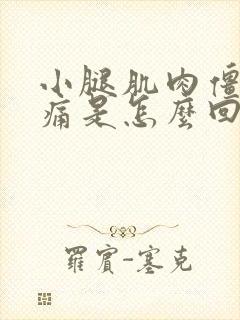 小腿肌肉僵
痛是怎麼回
羅賓-塞克